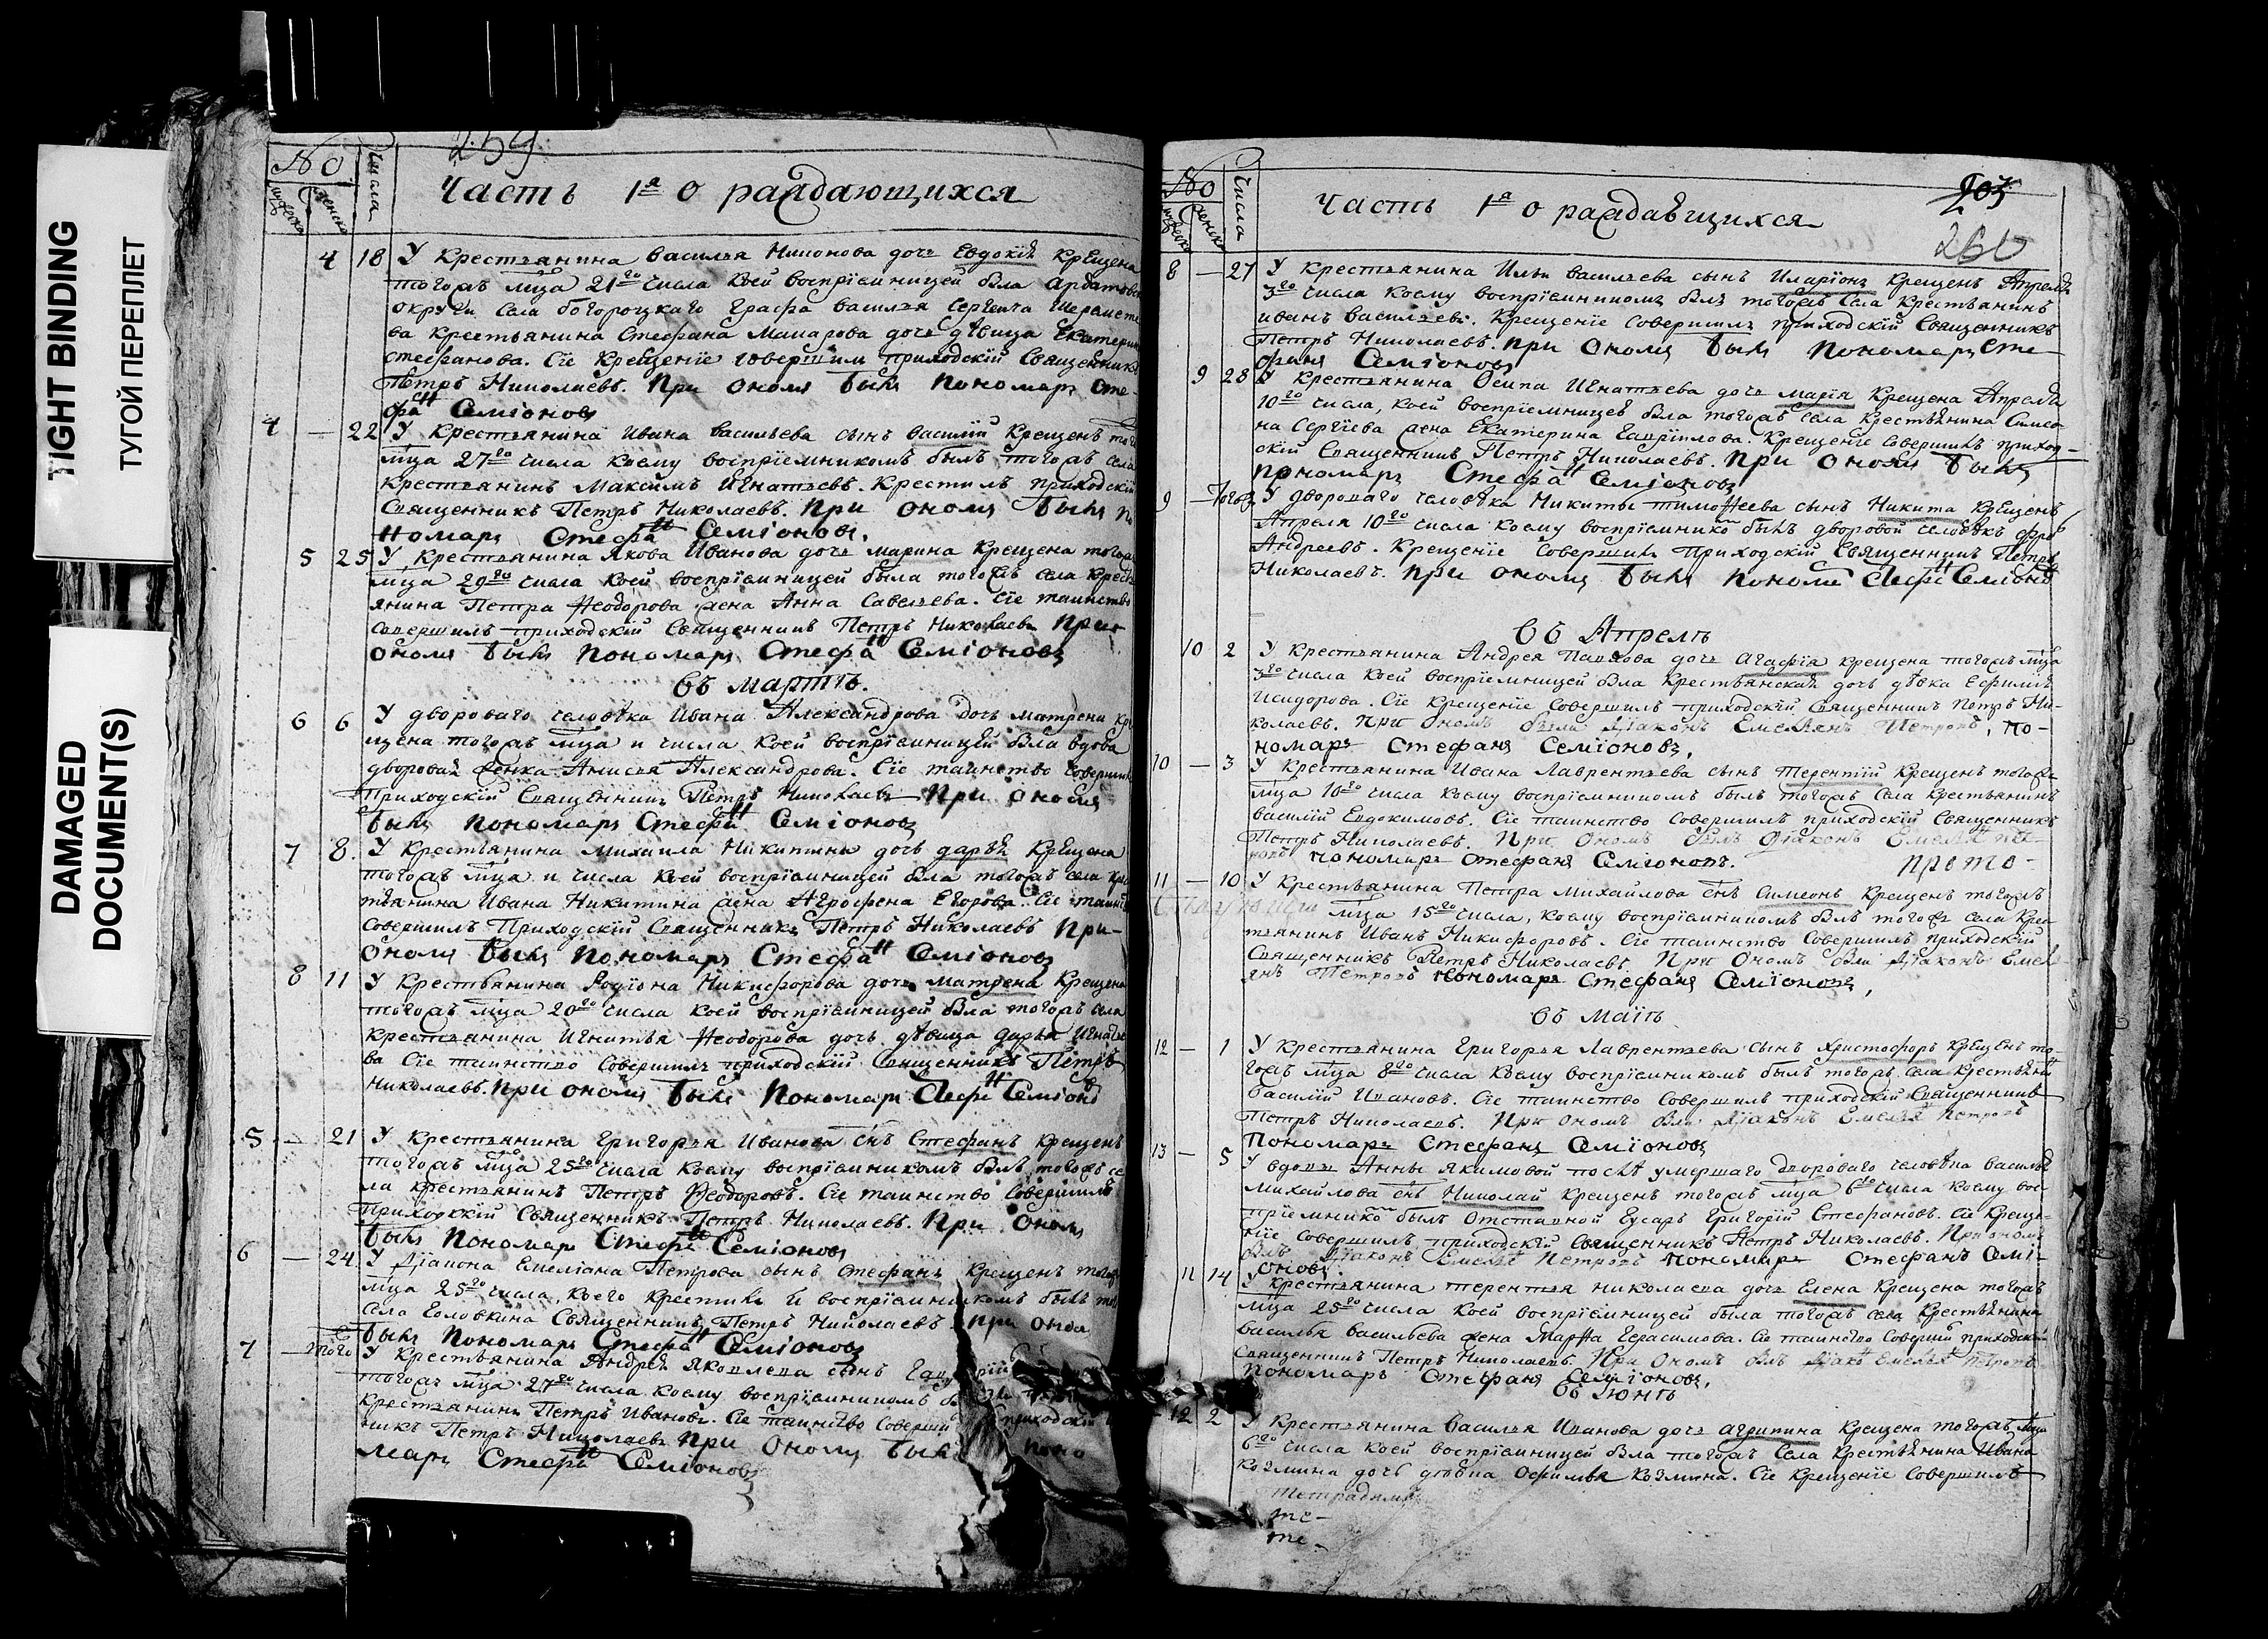 TIGHT BINDING
ТУГОЙ ПЕРЕПЛЕТ
DAMAGED
DOCUMENT(S)
259.
№
мужеска
женска
Числа
Часть 1я о раждающихся
4 18 У Крестьянина василья Нионова дочь Евдокія Крещена
тогожъ мца 21го числа коей воспріемницей была Ардатовс
округи Села богороцкаго Графа василья Сергеича Шеремете
ва крестьянина Стефана Макарова дочь дѣвица Екатерин
стефанова. Сіе Крещеніе совершилъ приходскій Священникъ
Петръ Николаевъ. При ономъ былъ пономарь Сте-
фанъ Семіоновъ
4 — 22 У Крестьянина Ивана васильева сынъ василій Крещенъ того
мца 27го числа коему воспріемникомъ былъ тогожъ села
крестьянинъ Максимъ Игнатьевъ. Крестилъ приходскій
Священникъ Петръ Николаевъ. При ономъ былъ по
номарь Стефанъ Семіоновъ.
5 25 У Крестьянина Якова Иванова дочь марина Крещена тогожъ
мца 29го числа коей воспріемницей была тогожъ села крест
янина Петра Ѳеодорова жена Анна Савельева. Сіе таинство
совершилъ приходскій Священникъ Петръ Николаевъ При
ономъ былъ пономарь Стефанъ Семіоновъ
въ мартѣ.
6 6 У двороваго человѣка Ивана Александрова дочь матрена Кре
щена тогожъ мца и числа коей воспріемницей была вдова
дворовая женка Анисья Александрова. Сіе таинство соверши
Приходскій Священникъ Петръ Николаевъ При ономъ
былъ пономарь Стефанъ Семіоновъ
7 8. У Крестьянина Михаила Никитина дочь дарья Крещена
тогожъ мца и числа коей воспріемницей была тогожъ села кре
тьянина Ивана Никитина жена Агрофена Егорова. Сіе таинс
совершилъ Приходскій Священникъ Петръ Николаевъ При-
ономъ былъ пономарь Стефанъ Семіоновъ
8 11 У Крестьянина Родіона Никифорова дочь матрена Крещена
тогожъ мца 20го числа коей воспріемницей была тогожъ села
крестьянина Игнатья Ѳеодорова дочь дѣвица дарья Игнатье
ва Сіе таинство совершилъ приходскій Священникъ Петръ
Николаевъ. При ономъ былъ пономарь Стефанъ Семіоновъ
5 — 21 У Крестьянина Григорья Иванова снъ Стефанъ крещенъ
тогожъ мца 25го числа коему воспріемникомъ былъ тогожъ се
ла крестьянинъ Петръ Ѳеодоровъ. Сіе таинство совершилъ
приходскій Священникъ Петръ Николаевъ. При ономъ
былъ пономарь Стефанъ Семіоновъ
6 — 24 У Діакона Емеліана Петрова сынъ Стефанъ Крещенъ тогож
мца 25го числа, коего крестилъ и воспріемникомъ былъ тог
села Еловкина Священникъ Петръ Николаевъ при
былъ пономарь Стефанъ Семіоновъ
7 — того У Крестьянина Андрея Яковлева сынъ
тогожъ мца 27го числа коему воспріемникомъ
крестьянинъ Петръ Ивановъ. Сіе таинство соверши приходскій
никъ Петръ Николаевъ при ономъ былъ поно
марь Стефанъ Семіоновъ
№
мужеска
женска
Числа
Часть 1я о раждавщихся
203
260
8 — 27 У Крестьянина Ильи васильева сынъ Иларіонъ крещенъ Апреля
3го числа коему воспріемникомъ былъ тогожъ Села крестьянинъ
иванъ васильевъ. Крещеніе совершилъ приходскій Священникъ
Петръ Николаевъ. при ономъ былъ пономарь Сте-
фанъ Семіоновъ
9 28 У Крестьянина Осипа Игнатьева дочь марія Крещена Апреля
10го числа, коей воспріемницей была тогожъ села крестьянина Симео-
на Сергіева жена Екатерина Гавріилова. Крещеніе совершилъ приход-
скій Священникъ Петръ Николаевъ. При ономъ былъ
пономарь Стефанъ Семіоновъ
9 — Тогожъ У двороваго человѣка Никиты тимоѳеева сынъ Никита Крещенъ
Апреля 10го числа коему воспріемникомъ былъ дворовой человѣкъ
Андреевъ. Крещеніе совершилъ Приходскій Священникъ Петръ
Николаевъ. При ономъ былъ пономарь Стефанъ Семіоновъ
въ Апрелѣ
10 2 У Крестьянина Андрея Павлова дочь Агафія крещена тогожъ мца
3го числа коей воспріемницей была крестьянская дочь дѣвка Ефимія
Исидорова. Сіе Крещеніе совершилъ приходскій Священникъ Петръ Ни-
колаевъ. При ономъ были Діаконъ Емельянъ Петровъ, по-
номарь Стефанъ Семіоновъ.
10 — 3 У Крестьянина Ивана Лаврентьева сынъ Терентій Крещенъ тогожъ
мца 10го числа коему воспріемникомъ былъ тогожъ Села крестьянинъ
василій Евдокимовъ. Сіе таинство совершилъ приходскій Священникъ
Петръ Николаевъ. При ономъ былъ Діаконъ
пономарь Стефанъ Семіоновъ.
11 — 10 У Крестьянина Петра Михайлова снъ Симеонъ Крещенъ тогожъ
мца 15го числа, коему воспріемникомъ былъ тогожъ села крес
тьянинъ Иванъ Никифоровъ. Сіе таинство совершилъ приходскій
Священникъ Петръ Николаевъ. При ономъ были Діаконъ Емел
янъ Петровъ пономарь Стефанъ Семіоновъ,
въ маіѣ
12 — 1 У Крестьянина Григорья Лаврентьева сынъ Христофоръ крещенъ то-
гожъ мца 8го числа коему воспріемникомъ былъ тогожъ села крестьяни
Василій Ивановъ. Сіе таинство совершилъ приходскій Священникъ
Петръ Николаевъ. При ономъ были Діаконъ Емельянъ Петровъ
пономарь Стефанъ Семіоновъ
13 — 5 У вдовы Анны Якимовой послѣ умершаго двороваго человѣка василья
Михайлова снъ Николай крещенъ тогожъ мца 6го числа коему вос-
пріемникомъ былъ Отставной Гусаръ Григорій Стефановъ. Сіе Креще-
ніе совершилъ приходскій Священникъ Петръ Николаевъ. При ономъ
былъ Діаконъ Емельянъ Петровъ пономарь Стефанъ Семі-
оновъ
11 14 У Крестьянина терентья николаева дочь Елена Крещена тогожъ
мца 25го числа коей воспріемницей была тогожъ села крестьянина
Василья Васильева жена Марѳа Герасимова. Сіе таинство совершилъ приходскій
Священникъ Петръ Николаевъ. При ономъ былъ Діаконъ Емельянъ Петровъ
пономарь Стефанъ Семіоновъ.
въ Іюнѣ
12 2 У Крестьянина Василья Иванова дочь агрипина Крещена тогожъ мца
6го числа коей воспріемницей была тогожъ Села крестьянина Ивана
козмина дочь дѣвка Офимья козмина. Сіе крещеніе совершилъ
те-
те-